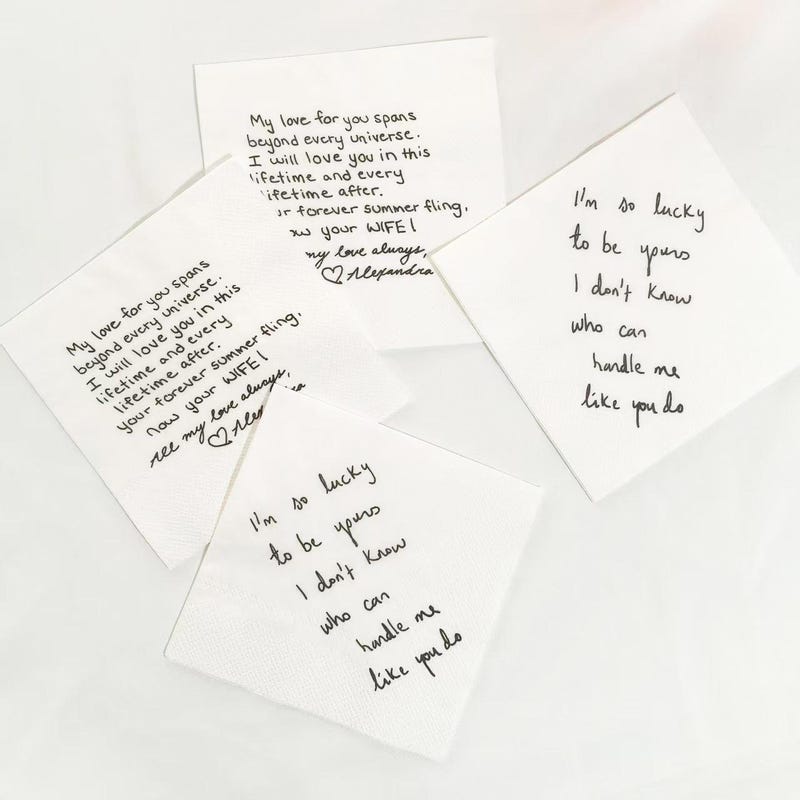 My love for you spans
beyond every universe.
I will love you in this
lifetime and every
lifetime after.
ur forever summer fling,
ow your WIFE!
my love always,
♡ Alexandra
My love for you spans
beyond every universe.
I will love you in this
lifetime and every
lifetime after.
your forever summer fling,
now your WIFE!
All my love always,
♡ Alexandra
I'm so lucky
to be yours
I don't know
who can
handle me
like you do
I'm so lucky
to be yours
I don't know
who can
handle me
like you do